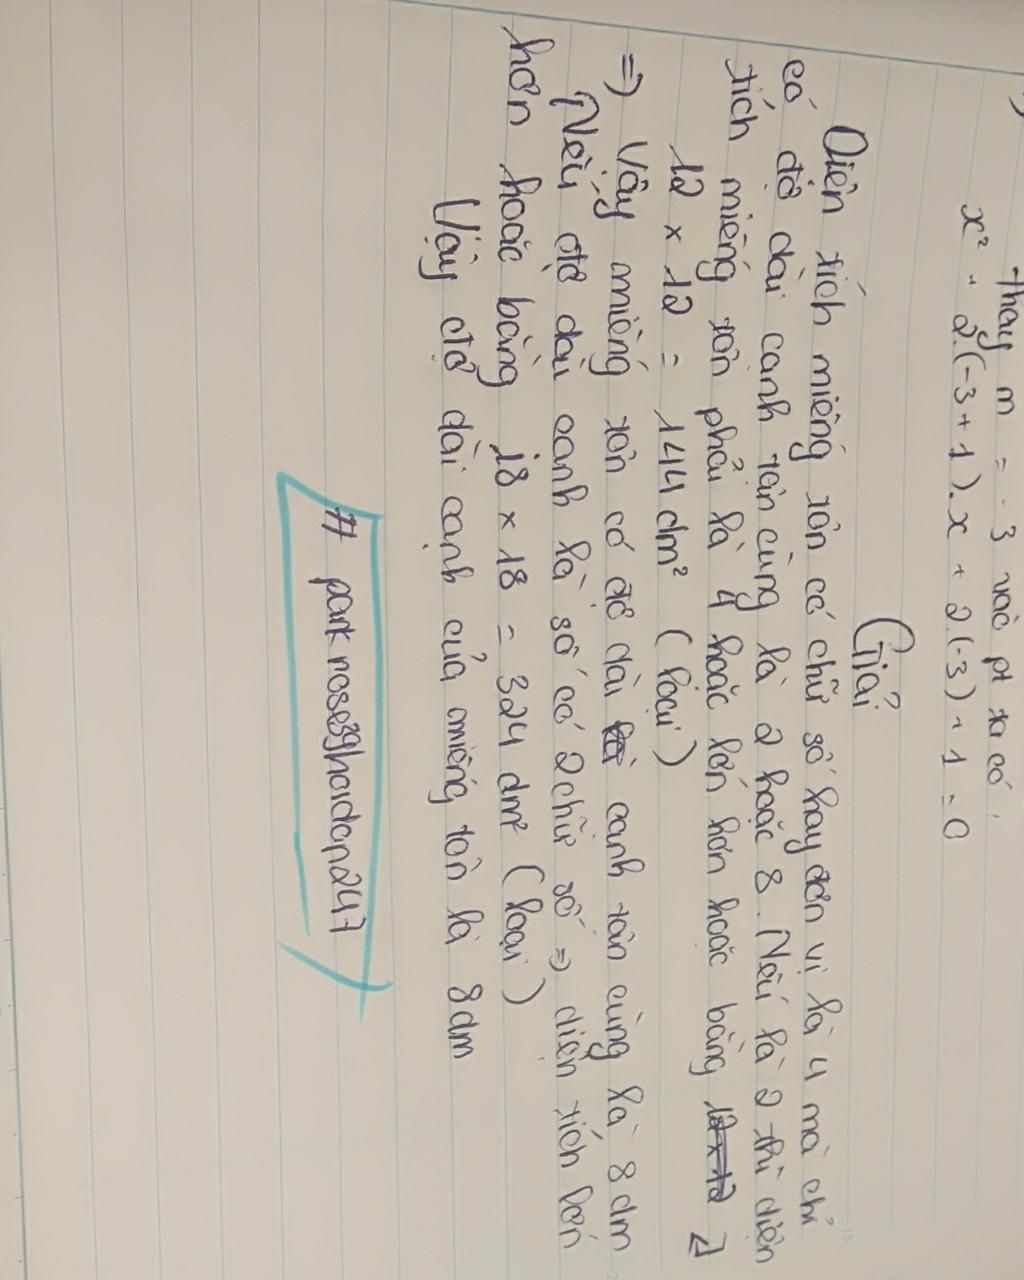 thay m = -3 vào pt ta có:
x² + 2.(-3+1).x + 2.(-3) + 1 = 0
Giải
Diện tích miếng tôn có chữ số hay đơn vị là 4 mà chỉ
có độ dài cạnh tận cùng là 2 hoặc 8. Nếu là 2 thì diện
tích miếng tôn phải là 4 hoặc lớn hơn hoặc bằng
12 × 12 = 144 dm² (loại)
=> Vậy miếng tôn có độ dài cạnh tận cùng là 8 dm
Nếu độ dài cạnh là số có 2 chữ số => diện tích lớn
hơn hoặc bằng 18 × 18 = 324 dm² (loại)
Vậy độ dài cạnh của miếng tôn là 8 dm
# parknosegghoidap247